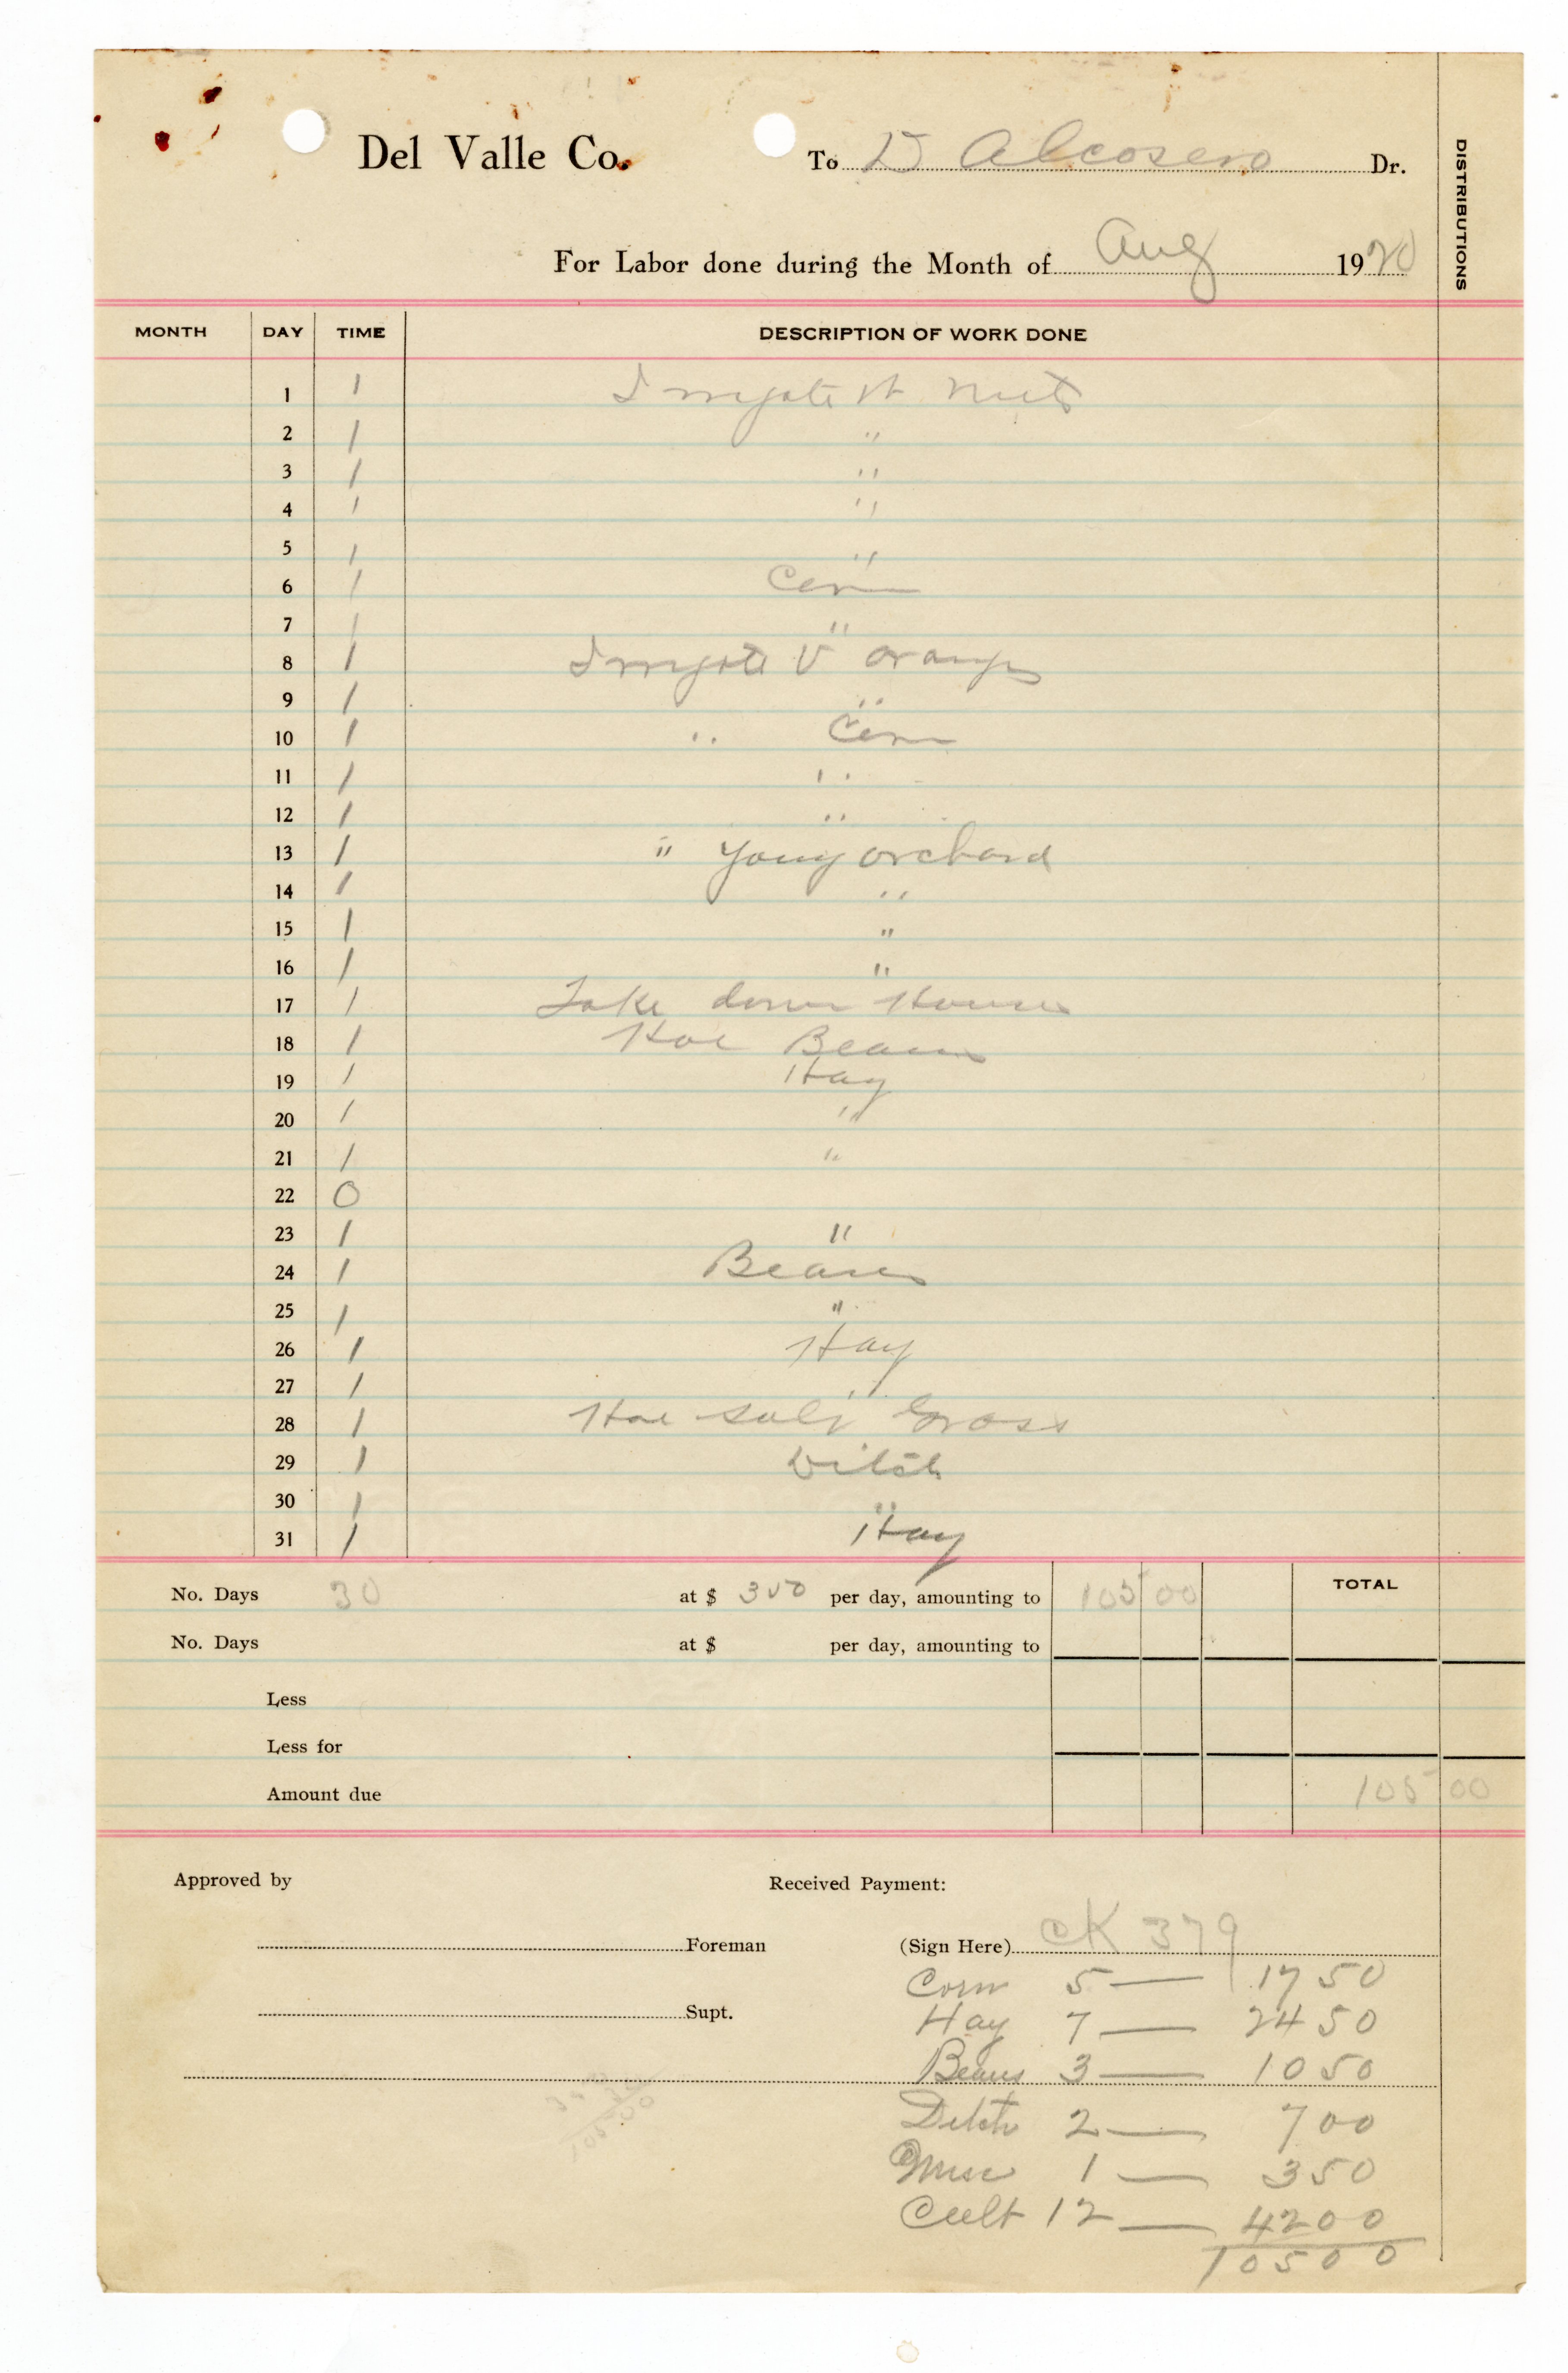 Del Valle Co. To D Alcosero Dr.
DISTRIBUTIONS
For Labor done during the Month of Aug 1920
MONTH DAY TIME DESCRIPTION OF WORK DONE
1 1 Irrigate W Nuts
2 1 "
3 1 "
4 1 "
5 1 "
6 1 Corn
7 1 "
8 1 Irrigate V Oranges
9 1 "
10 1 " Corn
11 1 "
12 1 "
13 1 " Young orchard
14 1 "
15 1 "
16 1 "
17 1 Take down House
18 1 Hoe Beans
19 1 Hay
20 1 "
21 1 "
22 0
23 1 "
24 1 Beans
25 1 "
26 1 Hay
27 1 "
28 1 Hoe Grass
29 1 Ditch
30 1 "
31 1 Hay
No. Days 30 at $ 350 per day, amounting to 105 00 TOTAL
No. Days at $ per day, amounting to
Less
Less for
Amount due 105 00
Approved by Received Payment:
Foreman (Sign Here) CK 379
Corn 5 — 17 50
Supt. Hay 7 — 24 50
Beans 3 — 10 50
Ditch 2 — 7 00
Misc 1 — 3 50
Cult 12 — 42 00
105 00